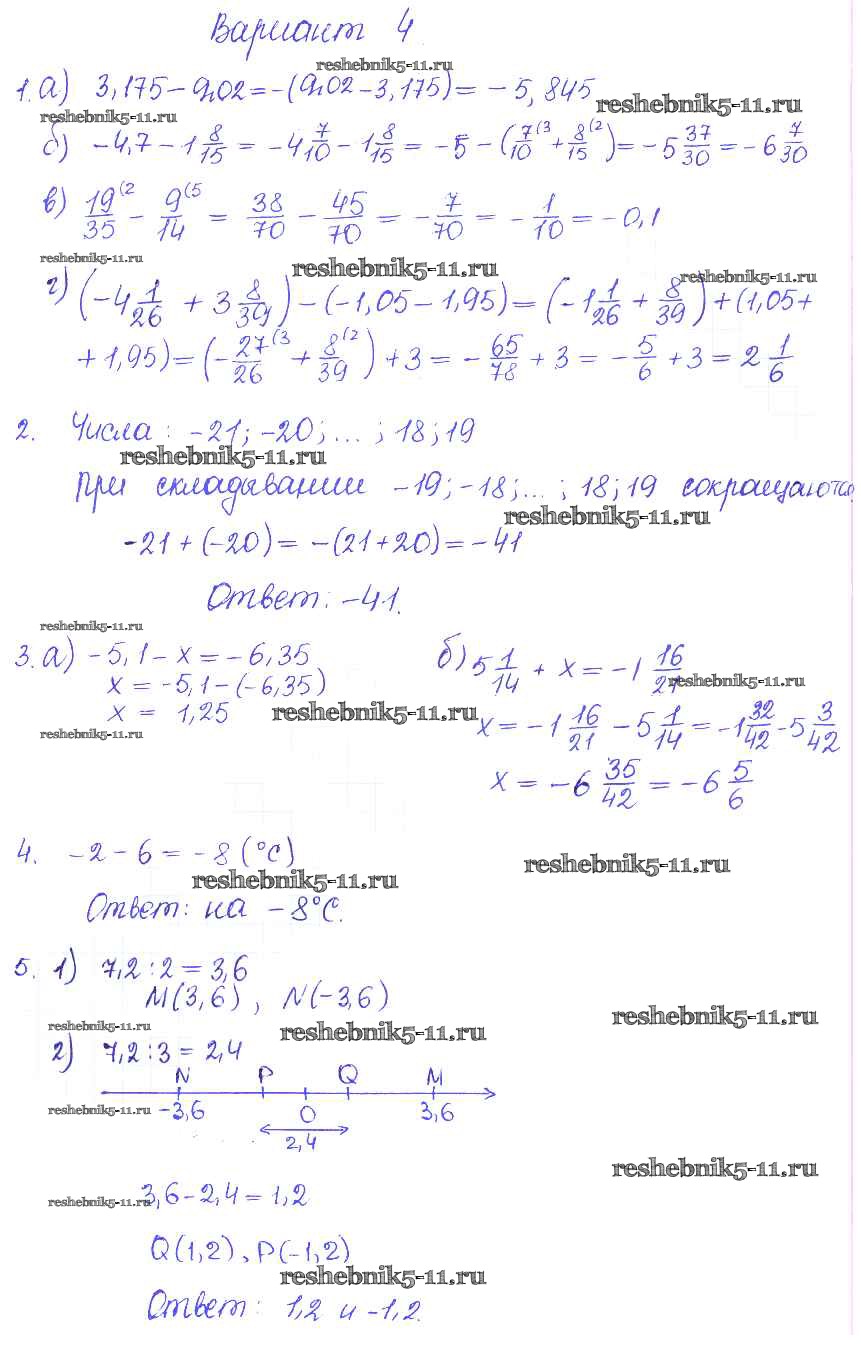 Вариант 4
reshebnik5-11.ru
1. а) 3,175 - 9,02 = -(9,02 - 3,175) = - 5,845
reshebnik5-11.ru
reshebnik5-11.ru
б) -4,7 - 1 8/15 = -4 7/10 - 1 8/15 = -5 - (7/10 (3 + 8/15 (2) = -5 37/30 = -6 7/30
в) 19/35 (2 - 9/14 (5 = 38/70 - 45/70 = - 7/70 = - 1/10 = -0,1
reshebnik5-11.ru
reshebnik5-11.ru
reshebnik5-11.ru
г) (-4 1/26 + 3 8/39) - (-1,05 - 1,95) = (-1 1/26 + 8/39) + (1,05 +
+ 1,95) = (- 27/26 (3 + 8/39 (2) + 3 = - 65/78 + 3 = - 5/6 + 3 = 2 1/6
2. Числа: -21; -20; ... ; 18; 19
reshebnik5-11.ru
При складывании -19; -18; ... ; 18; 19 сокращаются
reshebnik5-11.ru
-21 + (-20) = -(21 + 20) = -41
Ответ: -41.
reshebnik5-11.ru
3. а) -5,1 - x = -6,35
x = -5,1 - (-6,35)
x = 1,25
reshebnik5-11.ru
reshebnik5-11.ru
б) 5 1/14 + x = -1 16/21
reshebnik5-11.ru
x = -1 16/21 - 5 1/14 = -1 32/42 - 5 3/42
x = -6 35/42 = -6 5/6
4. -2 - 6 = -8 (°C)
reshebnik5-11.ru
reshebnik5-11.ru
Ответ: на -8°C.
5. 1) 7,2 : 2 = 3,6
M(3,6), N(-3,6)
reshebnik5-11.ru
reshebnik5-11.ru
reshebnik5-11.ru
2) 7,2 : 3 = 2,4
N P Q M
reshebnik5-11.ru
-3,6 0 3,6
2,4
reshebnik5-11.ru
reshebnik5-11.ru
3,6 - 2,4 = 1,2
Q(1,2), P(-1,2)
reshebnik5-11.ru
Ответ: 1,2 и -1,2.